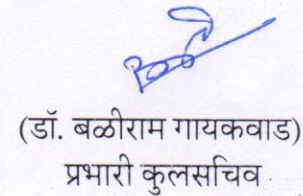 (डॉ. बळीराम गायकवाड)
प्रभारी कुलसचिव